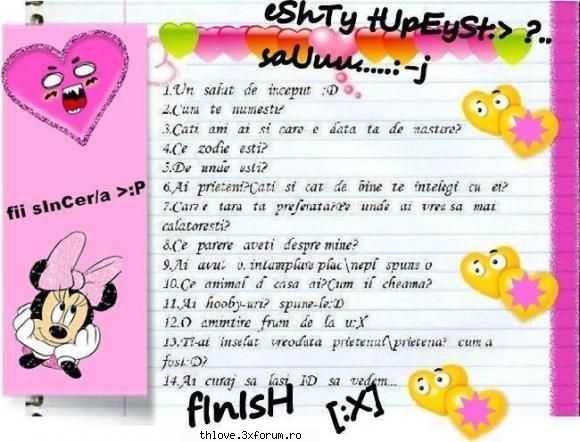 eShTy tUpEySt.> ?..
saUuu....:-j
fii sInCer/a >:P
1.Un salut de inceput :D
2.Cum te numesti?
3.Cati ani ai si care e data ta de nastere?
4.Ce zodie esti?
5.De unde esti?
6.Ai prieteni?Cati si cat de bine te intelegi cu ei?
7.Care e tara ta preferata?Pe unde ai vrea sa mai
calatoresti?
8.Ce parere aveti despre mine?
9.Ai avut o intamplare plac\nepl spune o
10.Ce animal d casa ai?Cum il cheama?
11.Ai hooby-uri? spune-le:D
12.O amintire frum de la u:X
13.Ti-ai inselat vreodata prietenul\prietena? cum a
fost:O?
14.Ai curaj sa lasi ID sa vedem...
fInIsH [:X]
thlove.3xforum.ro